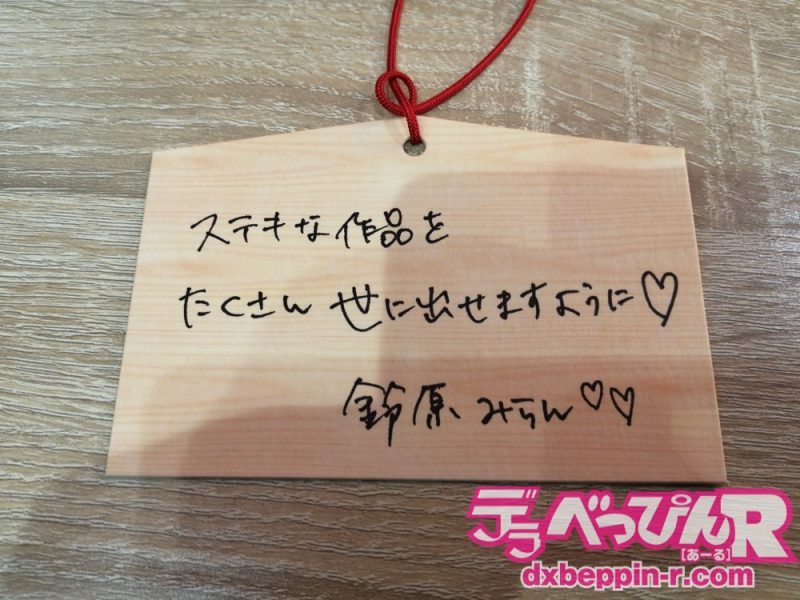 ステキな作品を
たくさん世に出せますように♡
鈴原みらん♡♡
デラべっぴんR
[あーる]
dxbeppin-r.com